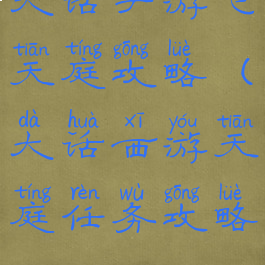 tiān tíng gōng lüè
天庭攻略（
dà huà xī yóu tiān
大话西游天
tíng rèn wù gōng lüè
庭任务攻略